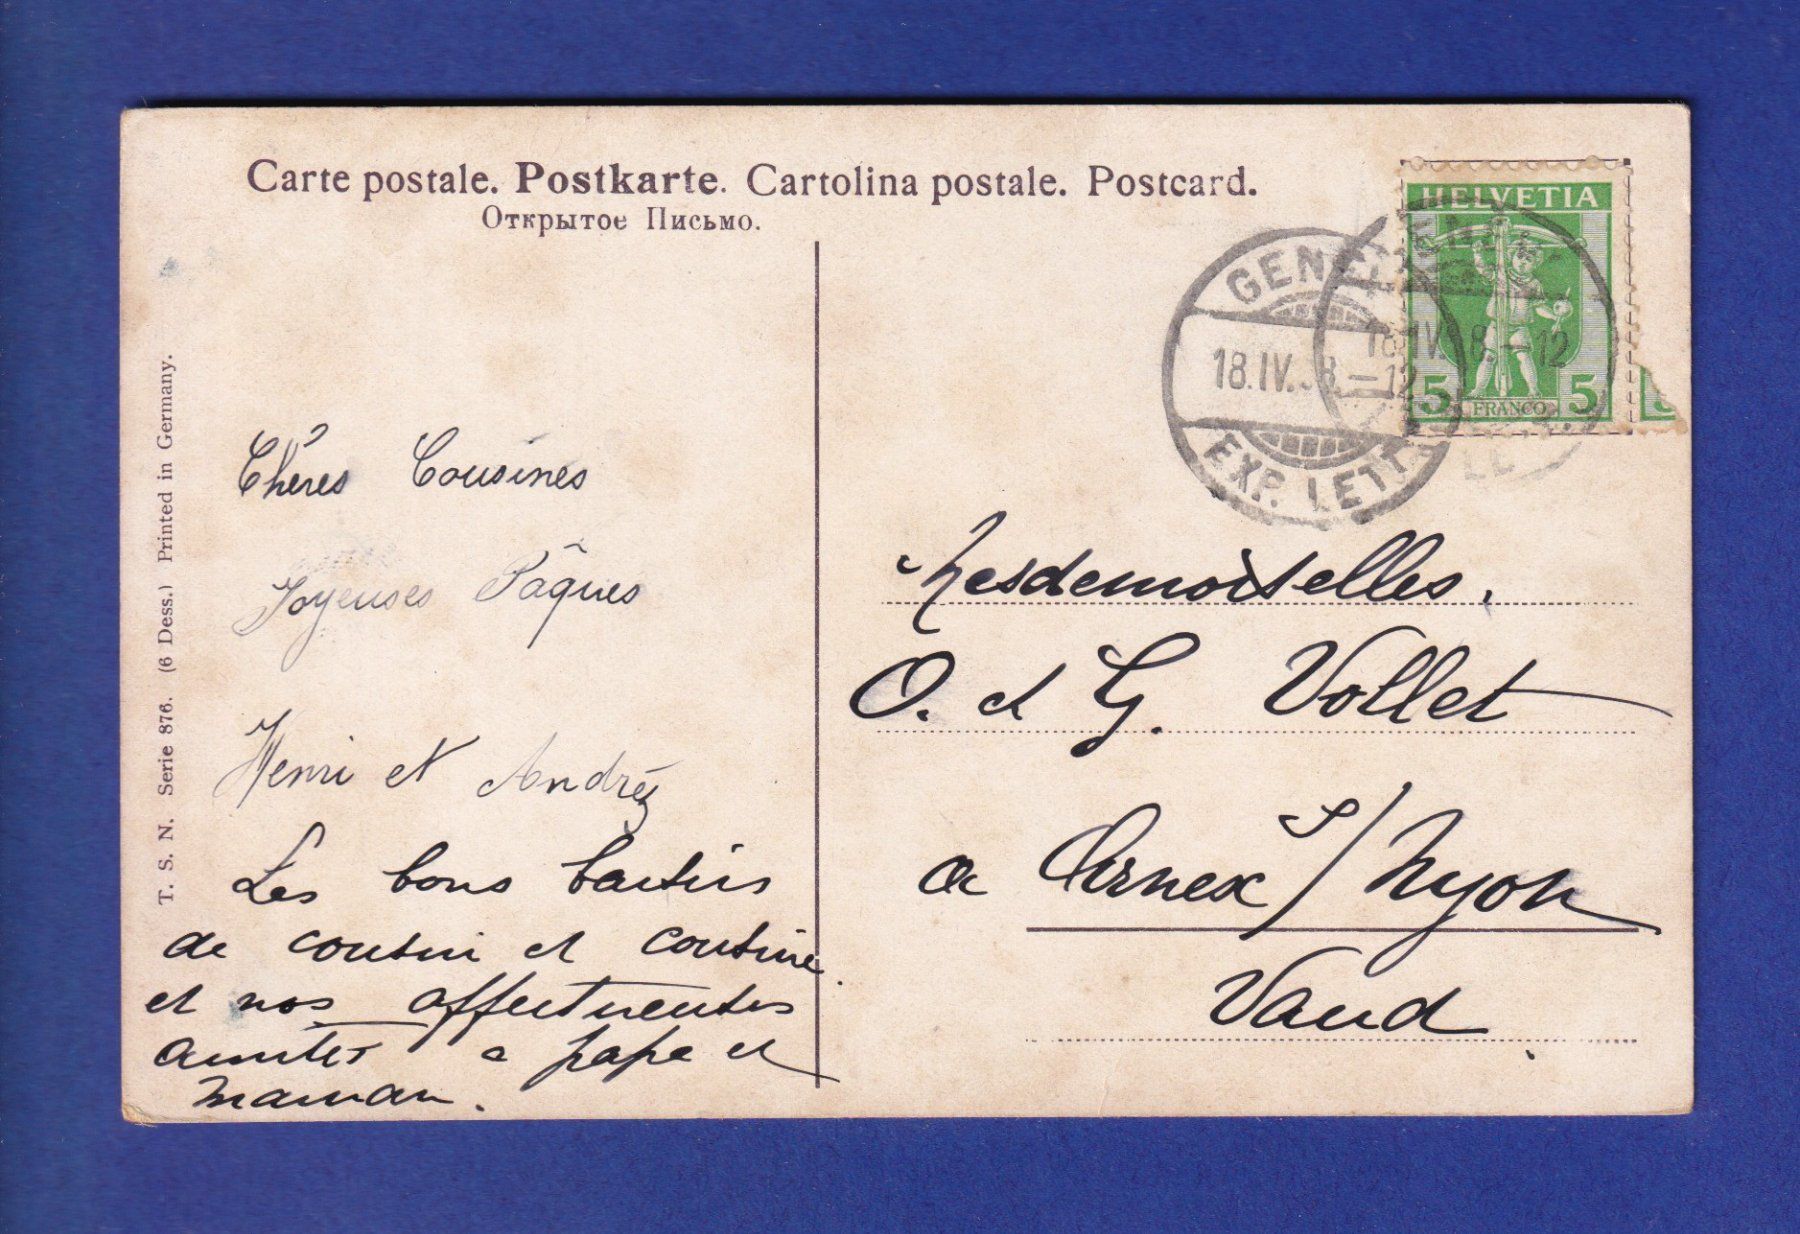 Carte postale. Postkarte. Cartolina postale. Postcard.
Открытое Письмо.
HELVETIA
5 FRANCO 5
GENÈVE
18.IV.08.—12
EXP. LETT.
18.IV.08.—12
T. S. N. Serie 876. (6 Dess.) Printed in Germany.
Chères Cousines
Joyeuses Pâques
Henri et André
Les bons baisers
de cousin et cousine
et nos affectueuses
amitiés a papa et
maman.
Mesdemoiselles.
O. et G. Vollet
a Arnex s/ Nyon
Vaud